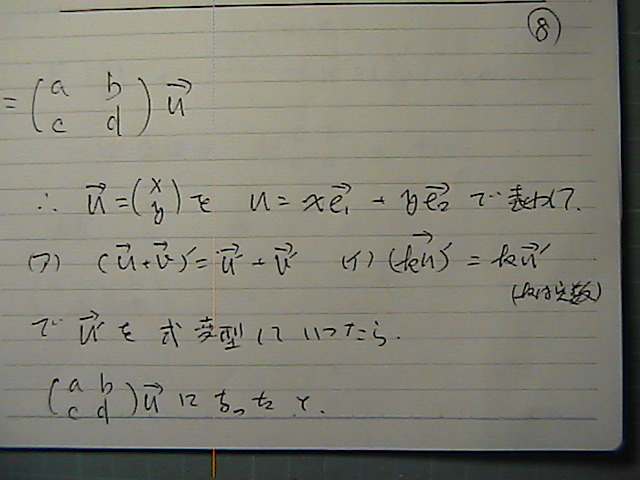 ⑧
= (a b
c d) u⃗
∴ u⃗ = (x
y) を u = xe₁⃗ + ye₂⃗ で表わして.
(ア) (u⃗+v⃗)′ = u⃗′ + v⃗′ (イ) (ku⃗)′ = ku⃗′
(kは定数)
で u⃗′ を式変型していったら.
(a b
c d) u⃗ になったと.